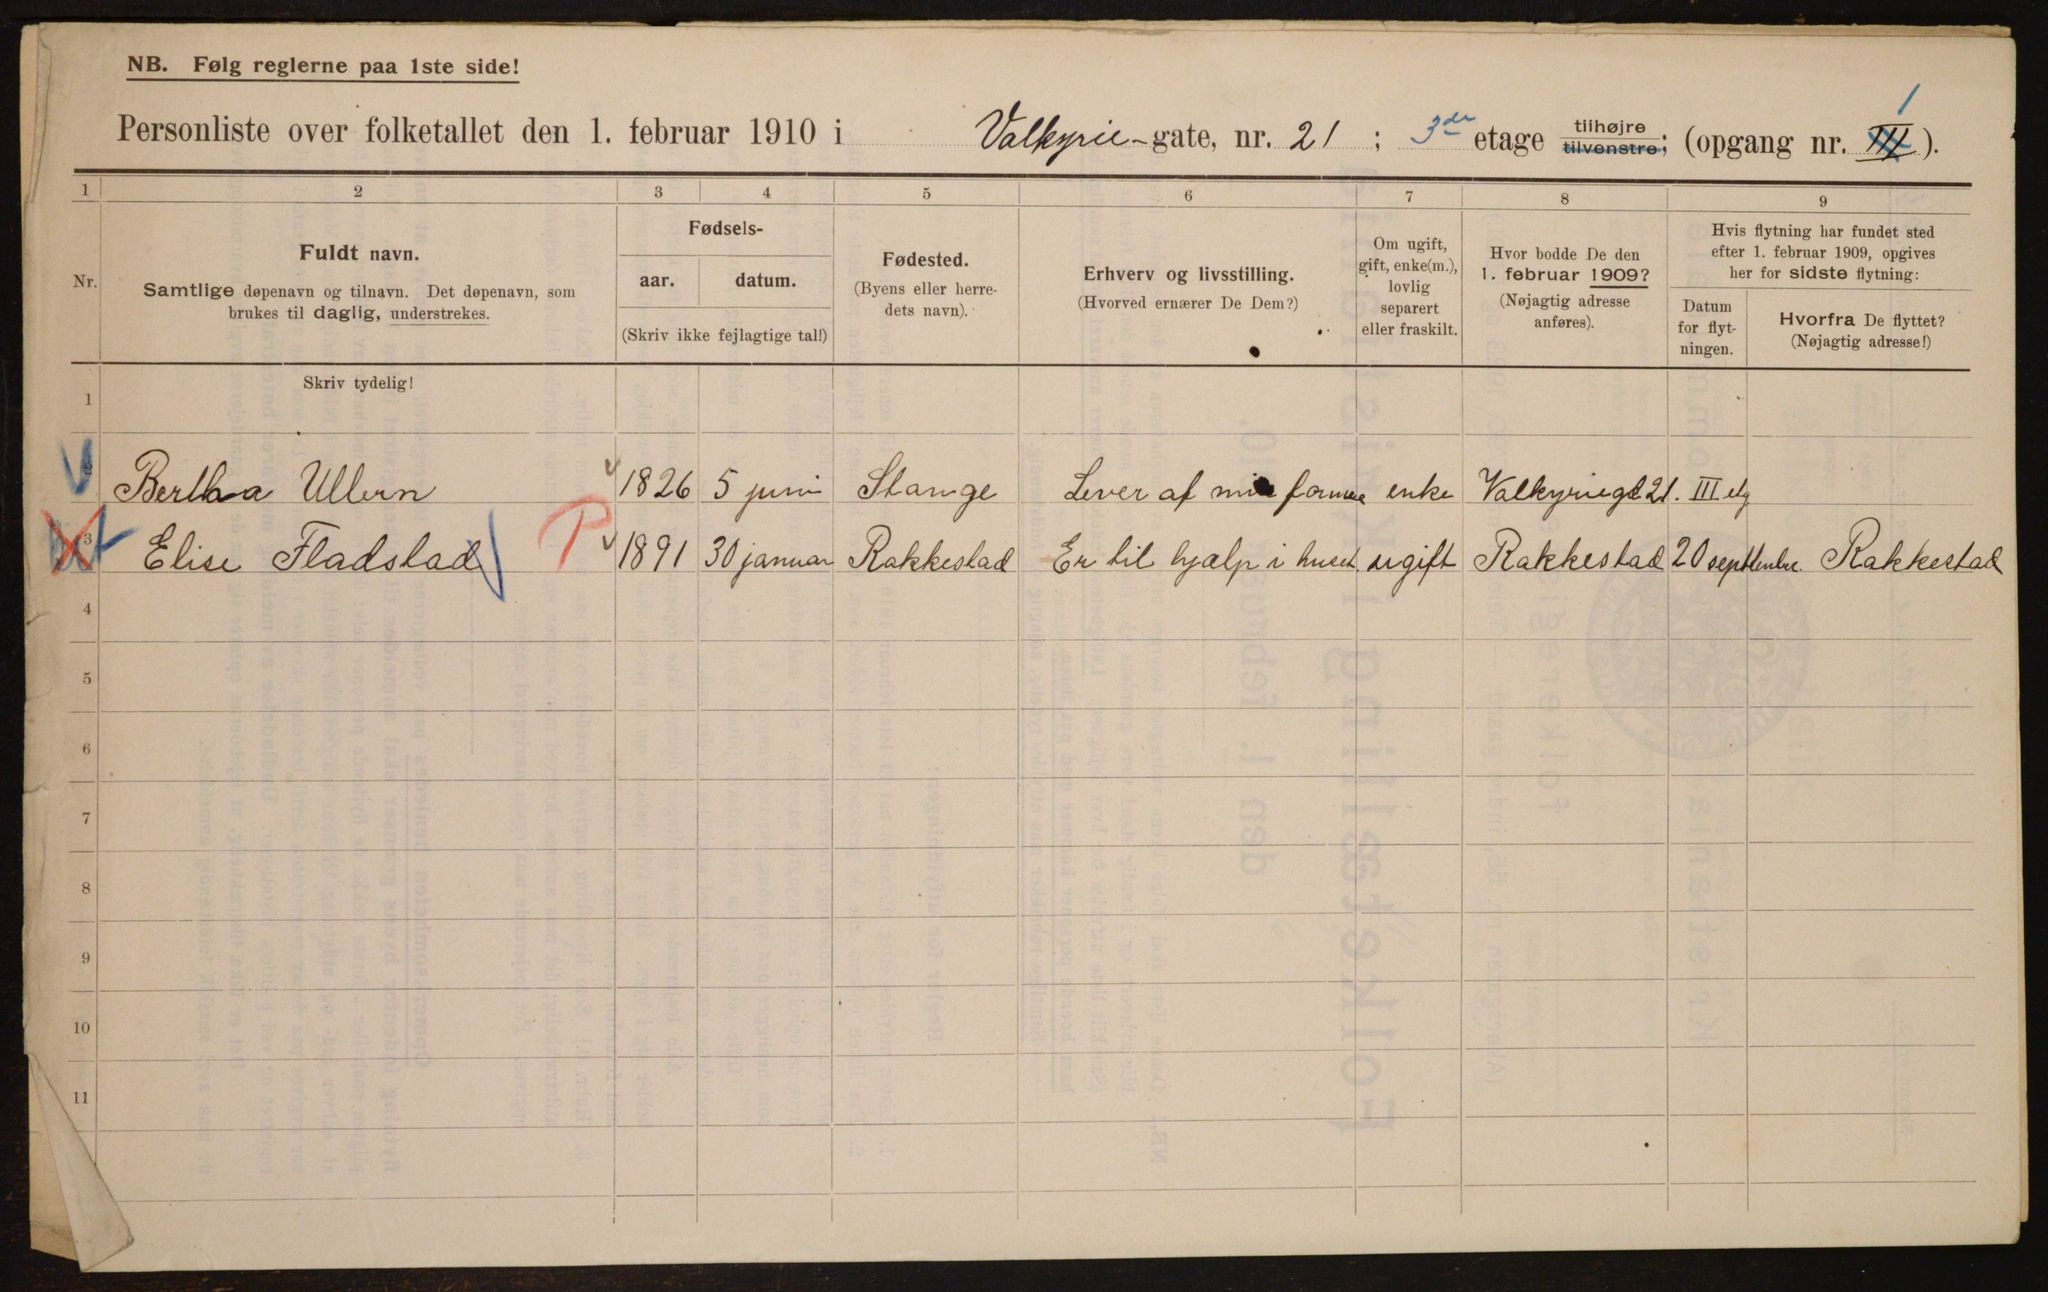 NB. Følg reglerne paa 1ste side!
1
Personliste over folketallet den 1. februar 1910 i Valkyrie-gate, nr. 21; 3de etage tilhøjre tilvenstre; (opgang nr. III).
1 2 3 4 5 6 7 8 9
Nr.
Fuldt navn.
Samtlige døpenavn og tilnavn. Det døpenavn, som
brukes til daglig, understrekes.
Fødsels-
aar. datum.
(Skriv ikke fejlagtige tal!)
Fødested.
(Byens eller herre-
dets navn).
Erhverv og livsstilling.
(Hvorved ernærer De Dem?)
Om ugift,
gift, enke(m.),
lovlig
separert
eller fraskilt.
Hvor bodde De den
1. februar 1909?
(Nøjagtig adresse
anføres).
Hvis flytning har fundet sted
efter 1. februar 1909, opgives
her for sidste flytning:
Datum
for flyt-
ningen.
Hvorfra De flyttet?
(Nøjagtig adresse!)
Skriv tydelig!
1
2 Bertha Ullern 1826 5 juni Stange Lever af min formue enke Valkyriegt 21. III etg
3 Elise Fladstad P 1891 30 januar Rakkestad Er til hjælp i huset. ugift Rakkestad 20 septtember Rakkestad
4
5
6
7
8
9
10
11